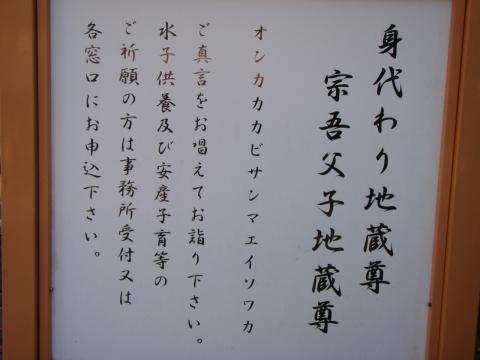 身代わり地蔵尊
宗吾父子地蔵尊
オンカカカビサンマエイソワカ
ご真言をお唱えてお詣り下さい。
水子供養及び安産子育等の
ご祈願の方は事務所受付又は
各窓口にお申込下さい。